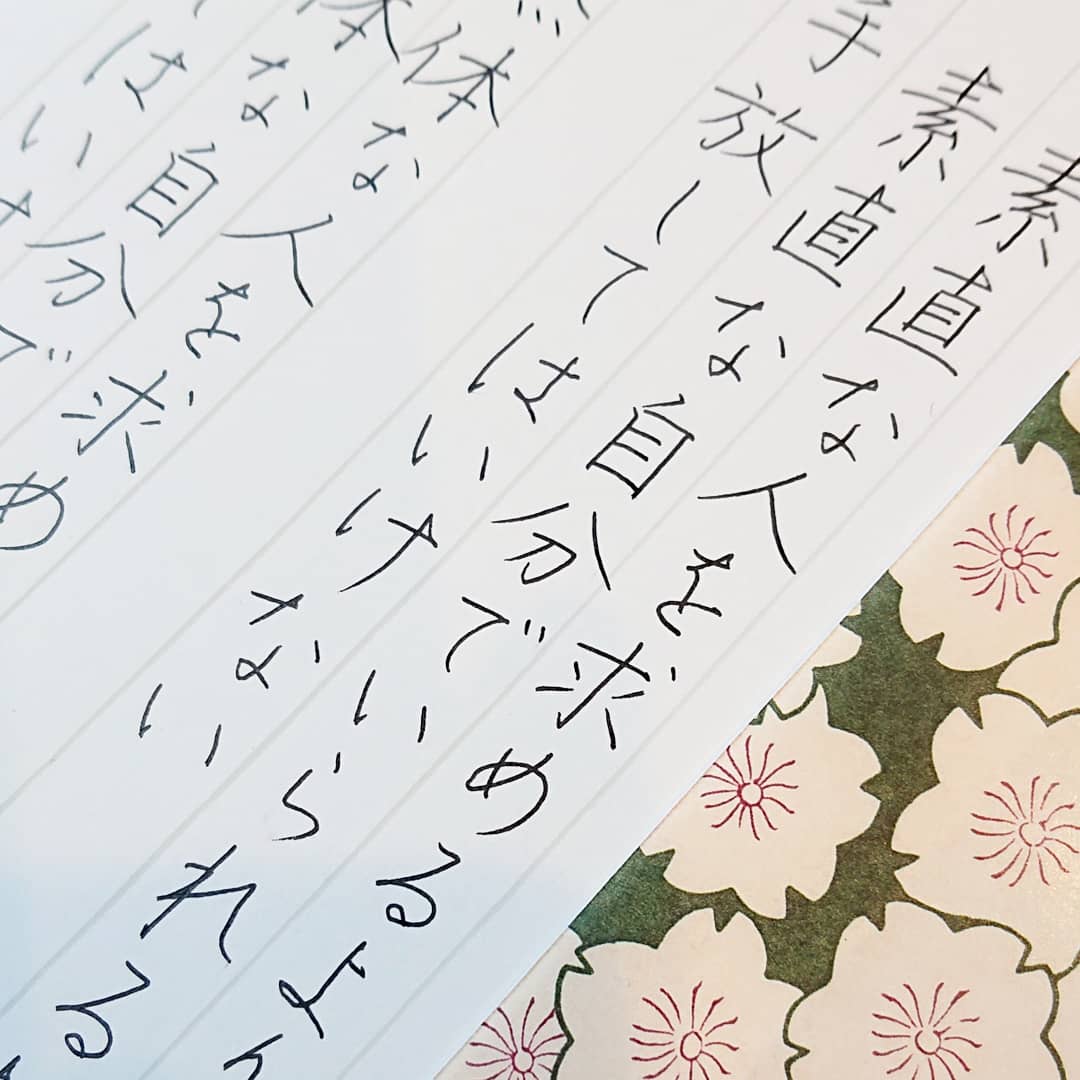 素直な人を求めるよ
素直な自分でいられる
手放してはいけない
体な人を求め
体な自分で
はい